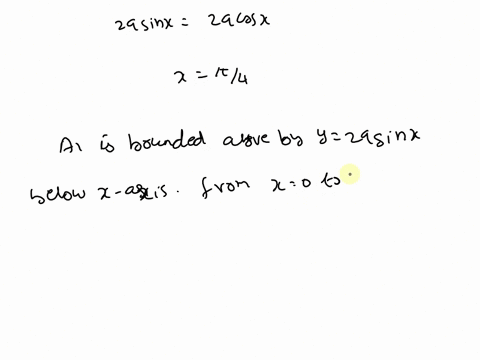 2a sinx = 2a cosx
x = π/4
A1 is bounded above by y = 2a sinx
below x-axis. from x=0 to